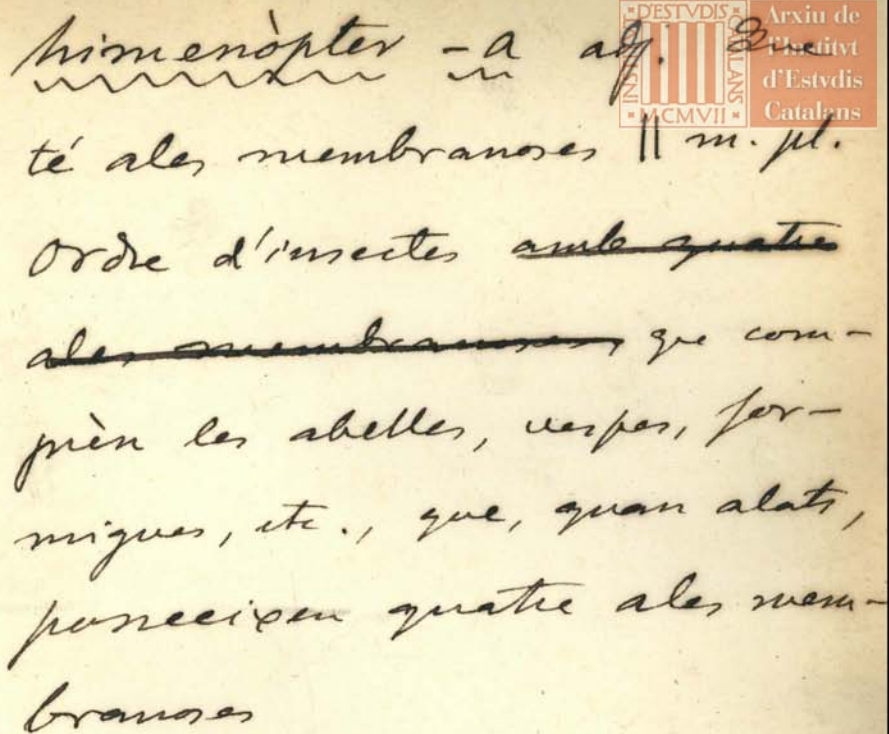 himenòpter -a adj. Que
té ales membranoses || m. pl.
Ordre d'insectes amb quatre
ales membranoses que com-
prèn les abelles, vespes, for-
migues, etc., que, quan alats,
posseeixen quatre ales mem-
branoses
INSTITVT D'ESTVDIS CATALANS
MCMVII
Arxiu de
l'Institvt
d'Estvdis
Catalans